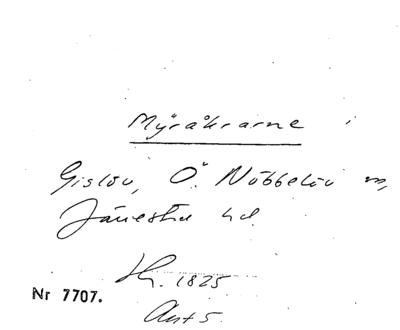 Myråkrarne
Gislöv, Ö. Nöbbelöv sn,
Järrestad hd
Sk. 1825
Nr 7707.
Akt 5